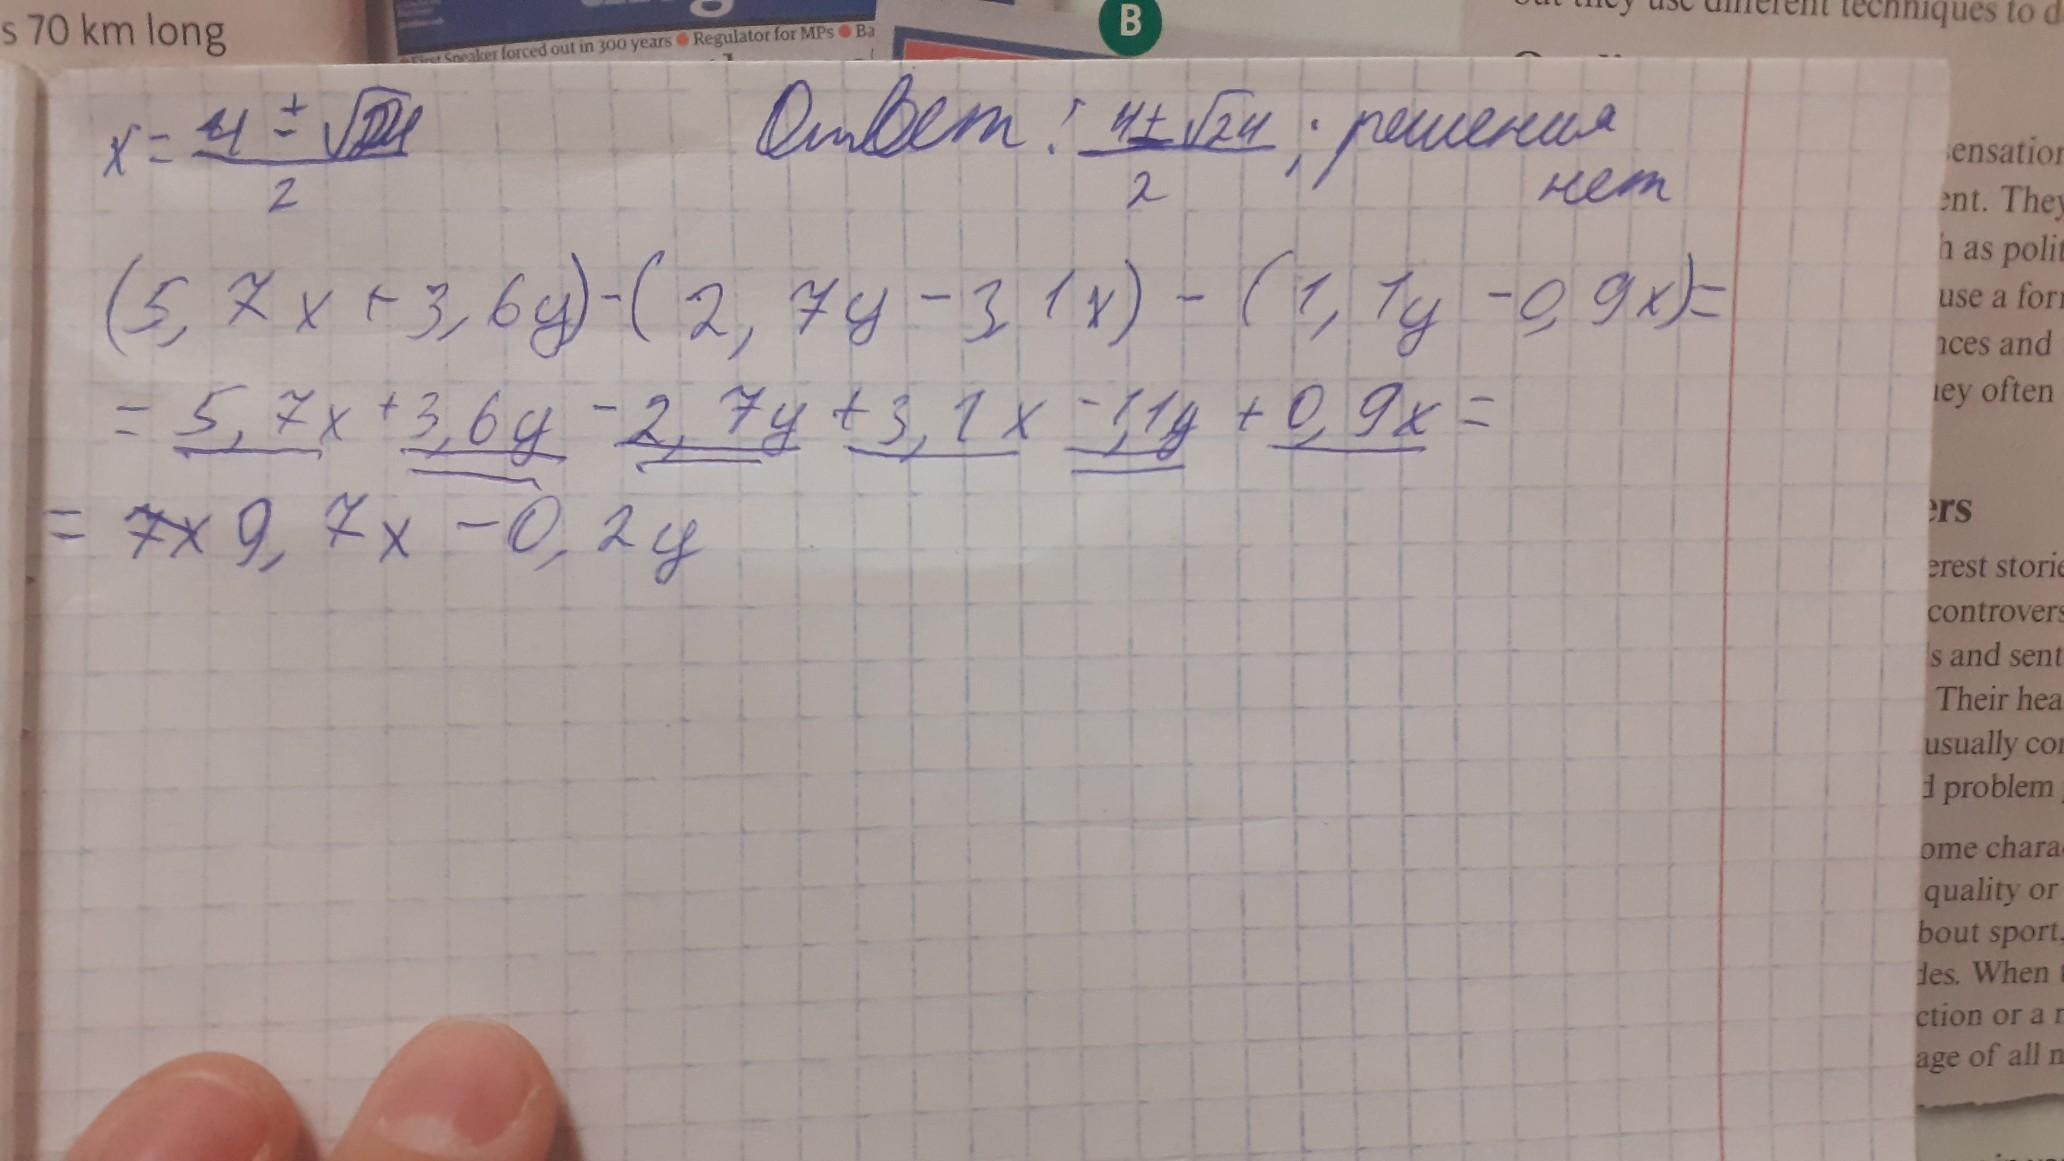 s 70 km long
First Speaker forced out in 300 years ● Regulator for MPs ● Ba
B
but they use different techniques to d
x = 4 ± √24 / 2
Ответ: 4 ± √24 / 2 ; решения
нет
(5,7x + 3,6y) - (2,7y - 3,1x) - (1,1y - 0,9x) =
= 5,7x + 3,6y - 2,7y + 3,1x - 1,1y + 0,9x =
= 7x 9,7x - 0,2y
sensation
ent. They
h as polit
use a for
nces and
hey often
ers
erest storie
controvers
s and sent
Their hea
usually co
d problem
ome chara
quality or
bout sport.
les. When
ction or a
age of all